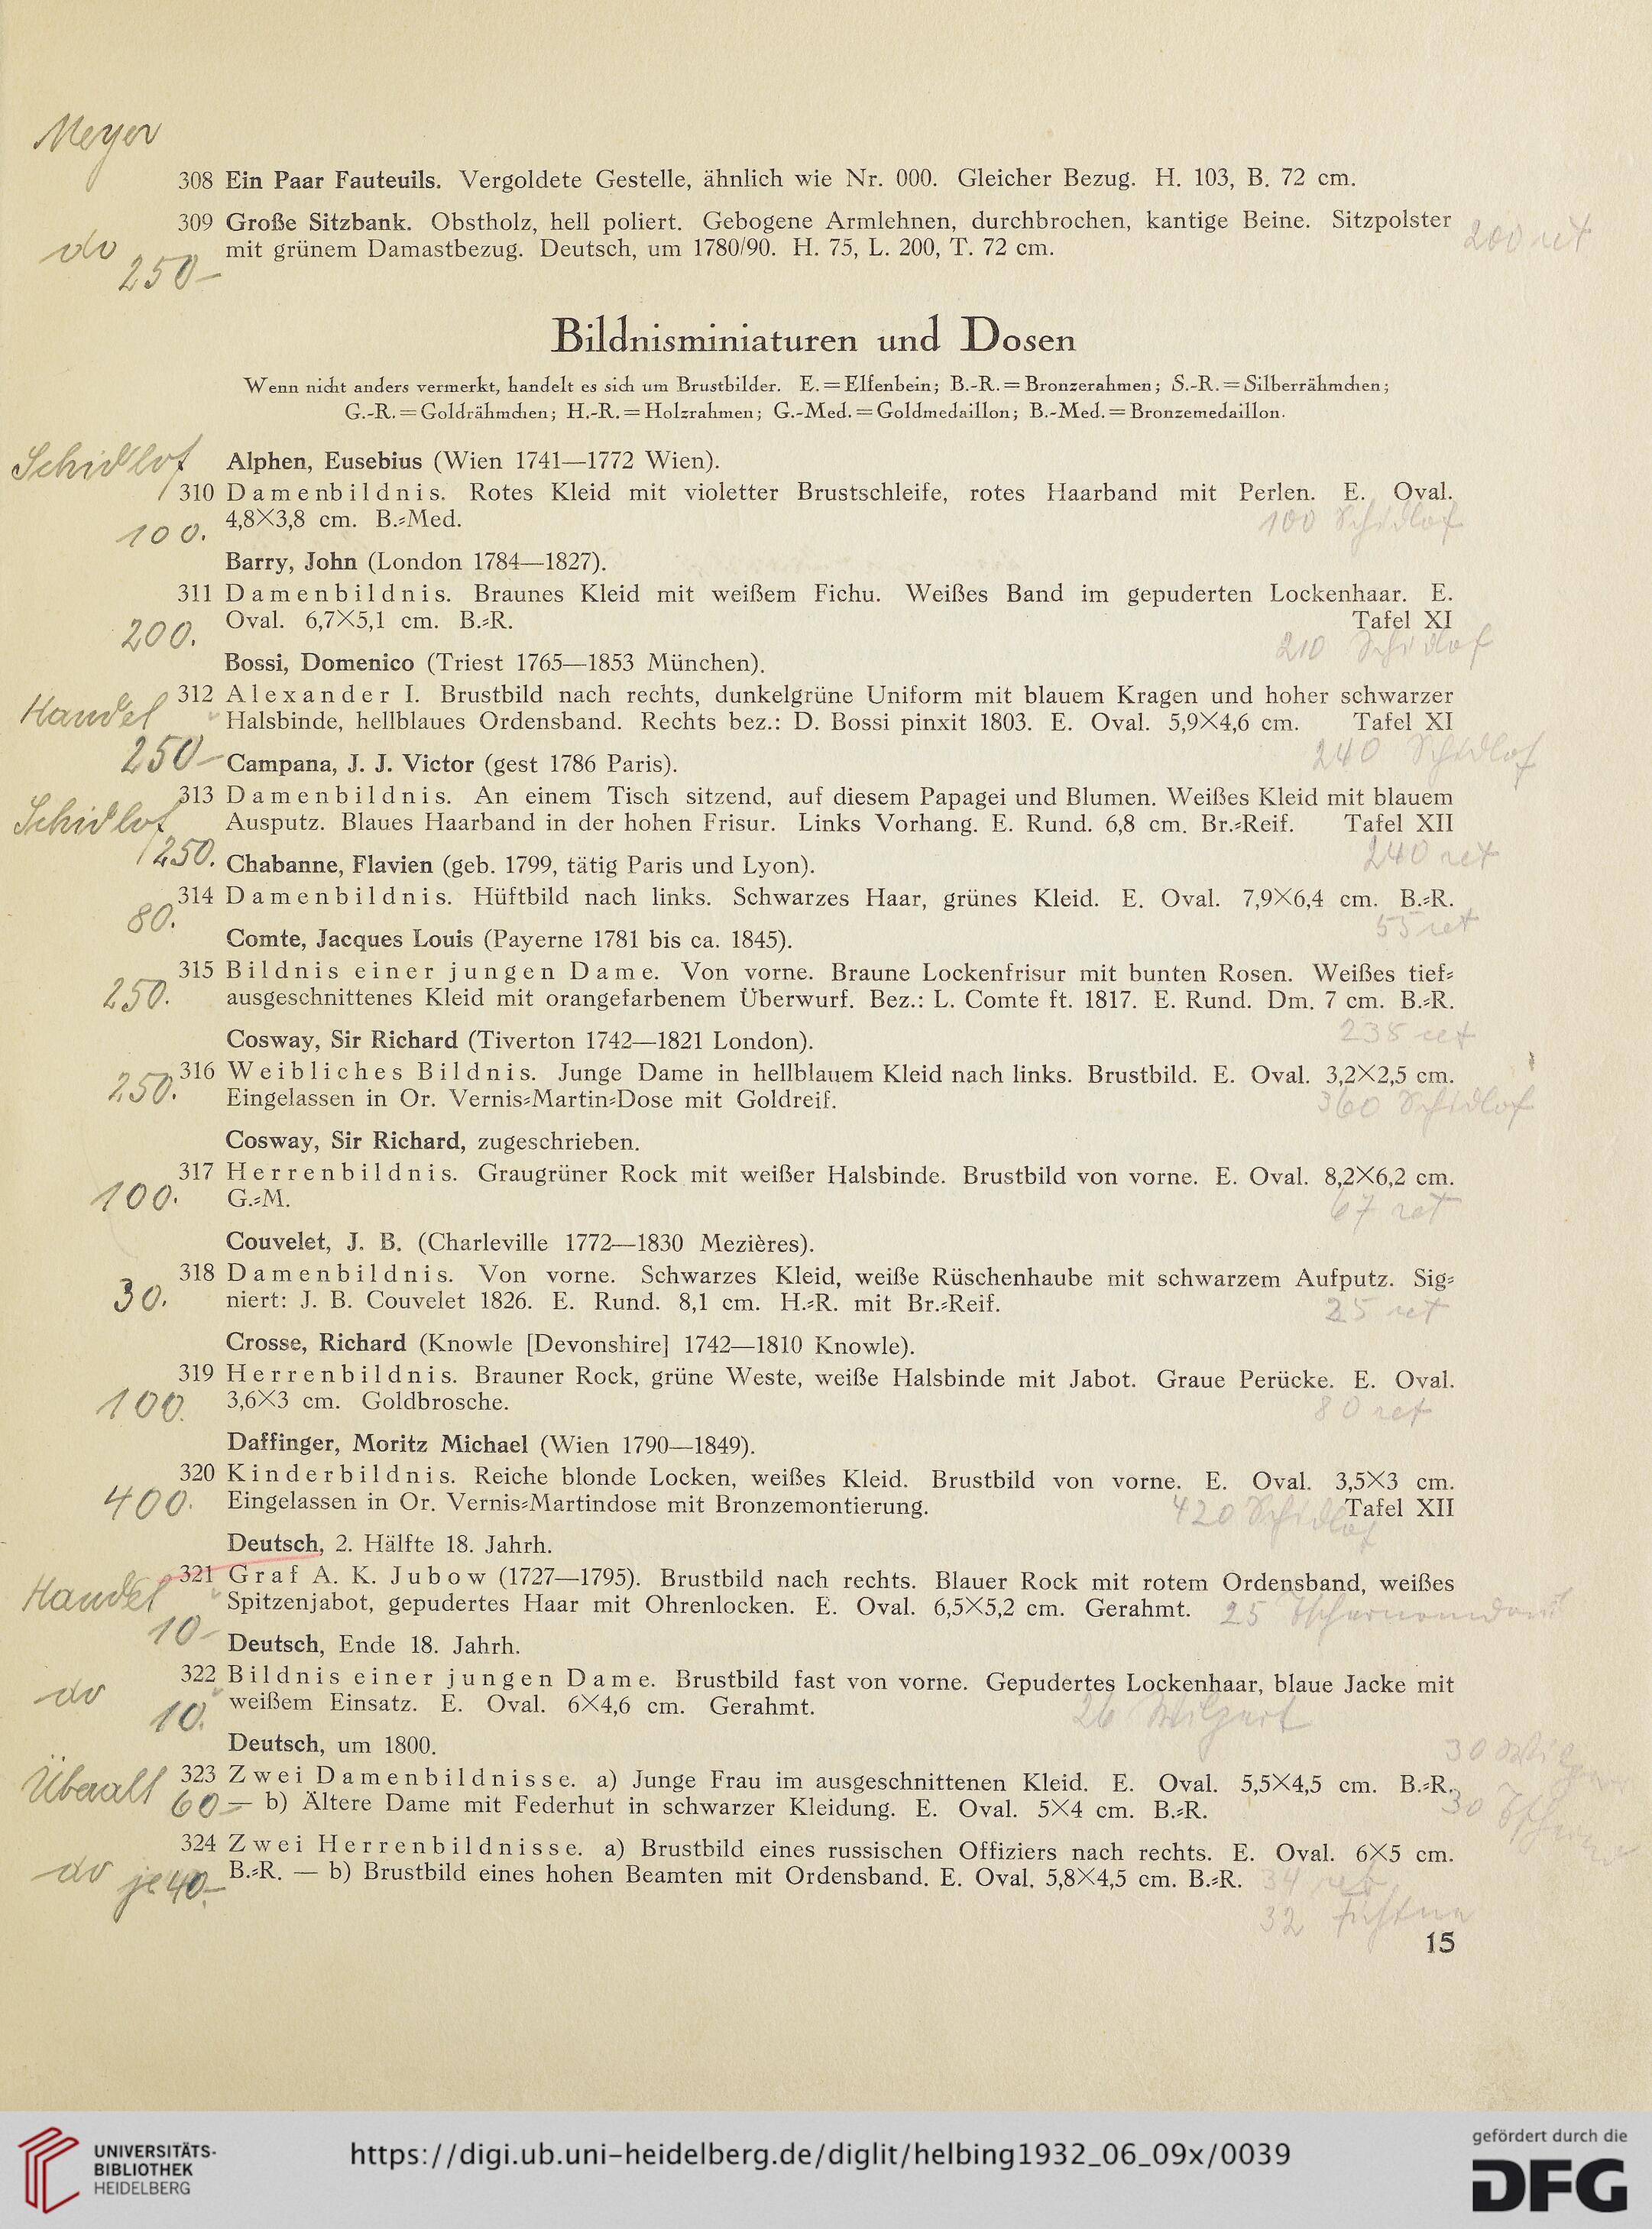 Meyer
308 Ein Paar Fauteuils. Vergoldete Gestelle, ähnlich wie Nr. 000. Gleicher Bezug. H. 103, B. 72 cm.
309 Große Sitzbank. Obstholz, hell poliert. Gebogene Armlehnen, durchbrochen, kantige Beine. Sitzpolster
200 ret
do
mit grünem Damastbezug. Deutsch, um 1780/90. H. 75, L. 200, T. 72 cm.
250-
Bildnisminiaturen und Dosen
Wenn nicht anders vermerkt, handelt es sich um Brustbilder. E. = Elfenbein; B.-R. = Bronzerahmen; S.-R. = Silberrähmchen;
G.-R. = Goldrähmchen; H.-R. = Holzrahmen; G.-Med. = Goldmedaillon; B.-Med. = Bronzemedaillon.
Schidlof
Alphen, Eusebius (Wien 1741—1772 Wien).
310 Damenbildnis. Rotes Kleid mit violetter Brustschleife, rotes Haarband mit Perlen. E. Oval.
4,8×3,8 cm. B.=Med.
100 Schidlof
100.
Barry, John (London 1784—1827).
311 Damenbildnis. Braunes Kleid mit weißem Fichu. Weißes Band im gepuderten Lockenhaar. E.
Oval. 6,7×5,1 cm. B.=R. Tafel XI
200.
210 Schidlof
Bossi, Domenico (Triest 1765—1853 München).
312 Alexander I. Brustbild nach rechts, dunkelgrüne Uniform mit blauem Kragen und hoher schwarzer
Handel
Halsbinde, hellblaues Ordensband. Rechts bez.: D. Bossi pinxit 1803. E. Oval. 5,9×4,6 cm. Tafel XI
250-
240 Schidlof
Campana, J. J. Victor (gest 1786 Paris).
313 Damenbildnis. An einem Tisch sitzend, auf diesem Papagei und Blumen. Weißes Kleid mit blauem
Schidlof
Ausputz. Blaues Haarband in der hohen Frisur. Links Vorhang. E. Rund. 6,8 cm. Br.=Reif. Tafel XII
250.
240 ret
Chabanne, Flavien (geb. 1799, tätig Paris und Lyon).
314 Damenbildnis. Hüftbild nach links. Schwarzes Haar, grünes Kleid. E. Oval. 7,9×6,4 cm. B.=R.
80.
55 ret
Comte, Jacques Louis (Payerne 1781 bis ca. 1845).
315 Bildnis einer jungen Dame. Von vorne. Braune Lockenfrisur mit bunten Rosen. Weißes tief=
250.
ausgeschnittenes Kleid mit orangefarbenem Überwurf. Bez.: L. Comte ft. 1817. E. Rund. Dm. 7 cm. B.=R.
235 ret
Cosway, Sir Richard (Tiverton 1742—1821 London).
316 Weibliches Bildnis. Junge Dame in hellblauem Kleid nach links. Brustbild. E. Oval. 3,2×2,5 cm.
250.
Eingelassen in Or. Vernis=Martin=Dose mit Goldreif.
360 Schidlof
Cosway, Sir Richard, zugeschrieben.
317 Herrenbildnis. Graugrüner Rock mit weißer Halsbinde. Brustbild von vorne. E. Oval. 8,2×6,2 cm.
100.
G.=M.
67 ret
Couvelet, J. B. (Charleville 1772—1830 Mezières).
318 Damenbildnis. Von vorne. Schwarzes Kleid, weiße Rüschenhaube mit schwarzem Aufputz. Sig=
30.
niert: J. B. Couvelet 1826. E. Rund. 8,1 cm. H.=R. mit Br.=Reif.
25 ret
Crosse, Richard (Knowle [Devonshire] 1742—1810 Knowle).
319 Herrenbildnis. Brauner Rock, grüne Weste, weiße Halsbinde mit Jabot. Graue Perücke. E. Oval.
100.
3,6×3 cm. Goldbrosche.
80 ret
Daffinger, Moritz Michael (Wien 1790—1849).
320 Kinderbildnis. Reiche blonde Locken, weißes Kleid. Brustbild von vorne. E. Oval. 3,5×3 cm.
400.
Eingelassen in Or. Vernis=Martindose mit Bronzemontierung. Tafel XII
420 Schidlof
Deutsch, 2. Hälfte 18. Jahrh.
321 Graf A. K. Jubow (1727—1795). Brustbild nach rechts. Blauer Rock mit rotem Ordensband, weißes
Handel
Spitzenjabot, gepudertes Haar mit Ohrenlocken. E. Oval. 6,5×5,2 cm. Gerahmt.
25
10-
Deutsch, Ende 18. Jahrh.
322 Bildnis einer jungen Dame. Brustbild fast von vorne. Gepudertes Lockenhaar, blaue Jacke mit
do
weißem Einsatz. E. Oval. 6×4,6 cm. Gerahmt.
10.
26
Deutsch, um 1800.
30
Überall
323 Zwei Damenbildnisse. a) Junge Frau im ausgeschnittenen Kleid. E. Oval. 5,5×4,5 cm. B.=R.
60-
— b) Ältere Dame mit Federhut in schwarzer Kleidung. E. Oval. 5×4 cm. B.=R.
30
324 Zwei Herrenbildnisse. a) Brustbild eines russischen Offiziers nach rechts. E. Oval. 6×5 cm.
do je 40.-
B.=R. — b) Brustbild eines hohen Beamten mit Ordensband. E. Oval. 5,8×4,5 cm. B.=R.
34 ret
32
15
UNIVERSITÄTS-
BIBLIOTHEK
HEIDELBERG
https://digi.ub.uni-heidelberg.de/diglit/helbing1932_06_09x/0039
gefördert durch die
DFG